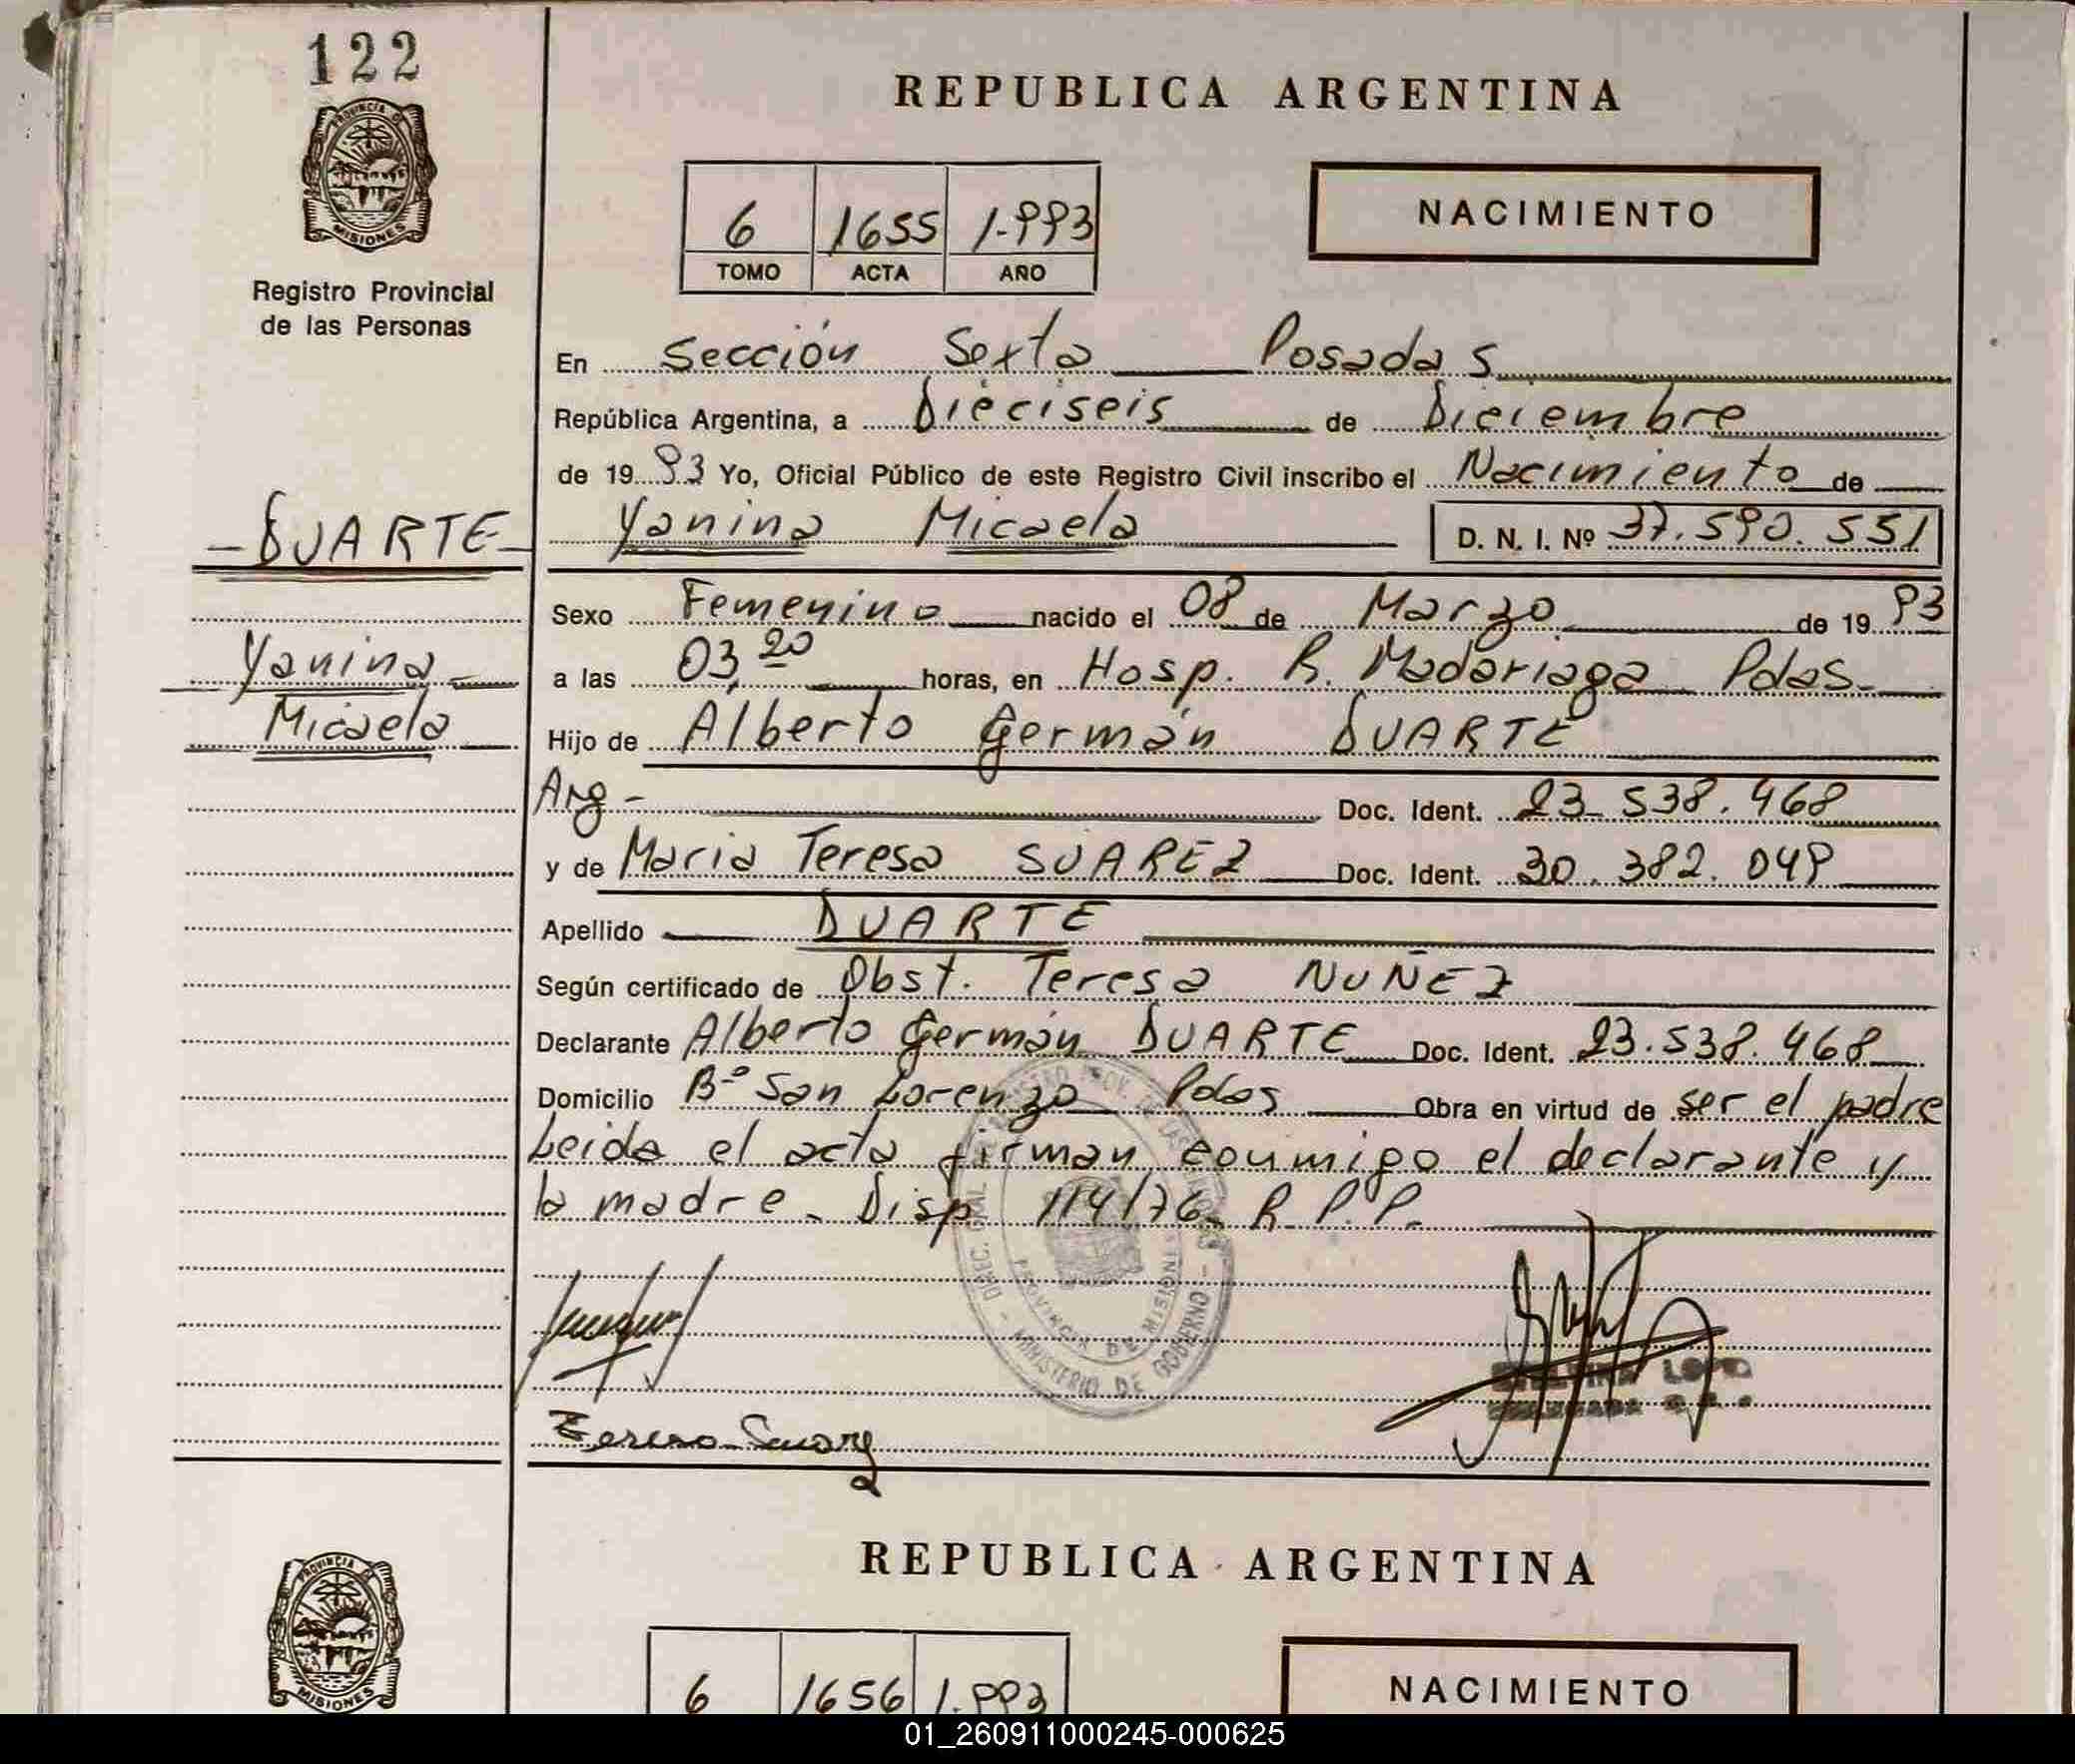 122
PROVINCIA DE
MISIONES
Registro Provincial
de las Personas
DUARTE
Yanina
Micaela
REPUBLICA ARGENTINA
6 1655 1.993
TOMO ACTA AÑO
NACIMIENTO
En Sección Sexta Posadas
República Argentina, a Dieciseis de Diciembre
de 19 93 Yo, Oficial Público de este Registro Civil inscribo el Nacimiento de
Yanina Micaela D. N. I. Nº 37.590.551
Sexo Femenino nacido el 08 de Marzo de 19 93
a las 03,20 horas, en Hosp. R. Madariaga Pdas.
Hijo de Alberto Germán DUARTE
Arg - Doc. Ident. 23.538.468
y de Maria Teresa SUAREZ Doc. Ident. 30.382.049
Apellido DUARTE
Según certificado de Obst. Teresa NUÑEZ
Declarante Alberto Germán DUARTE Doc. Ident. 23.538.468
Domicilio Bº San Lorenzo Pdas Obra en virtud de ser el padre
Leida el acta firman conmigo el declarante y
la madre. Disp 114/76 R.P.P.
PROVINCIA DE MISIONES
MINISTERIO DE GOBIERNO
Teresa Suarez
PROVINCIA
MISIONES
REPUBLICA ARGENTINA
6 1656 1.993
NACIMIENTO
01_260911000245-000625